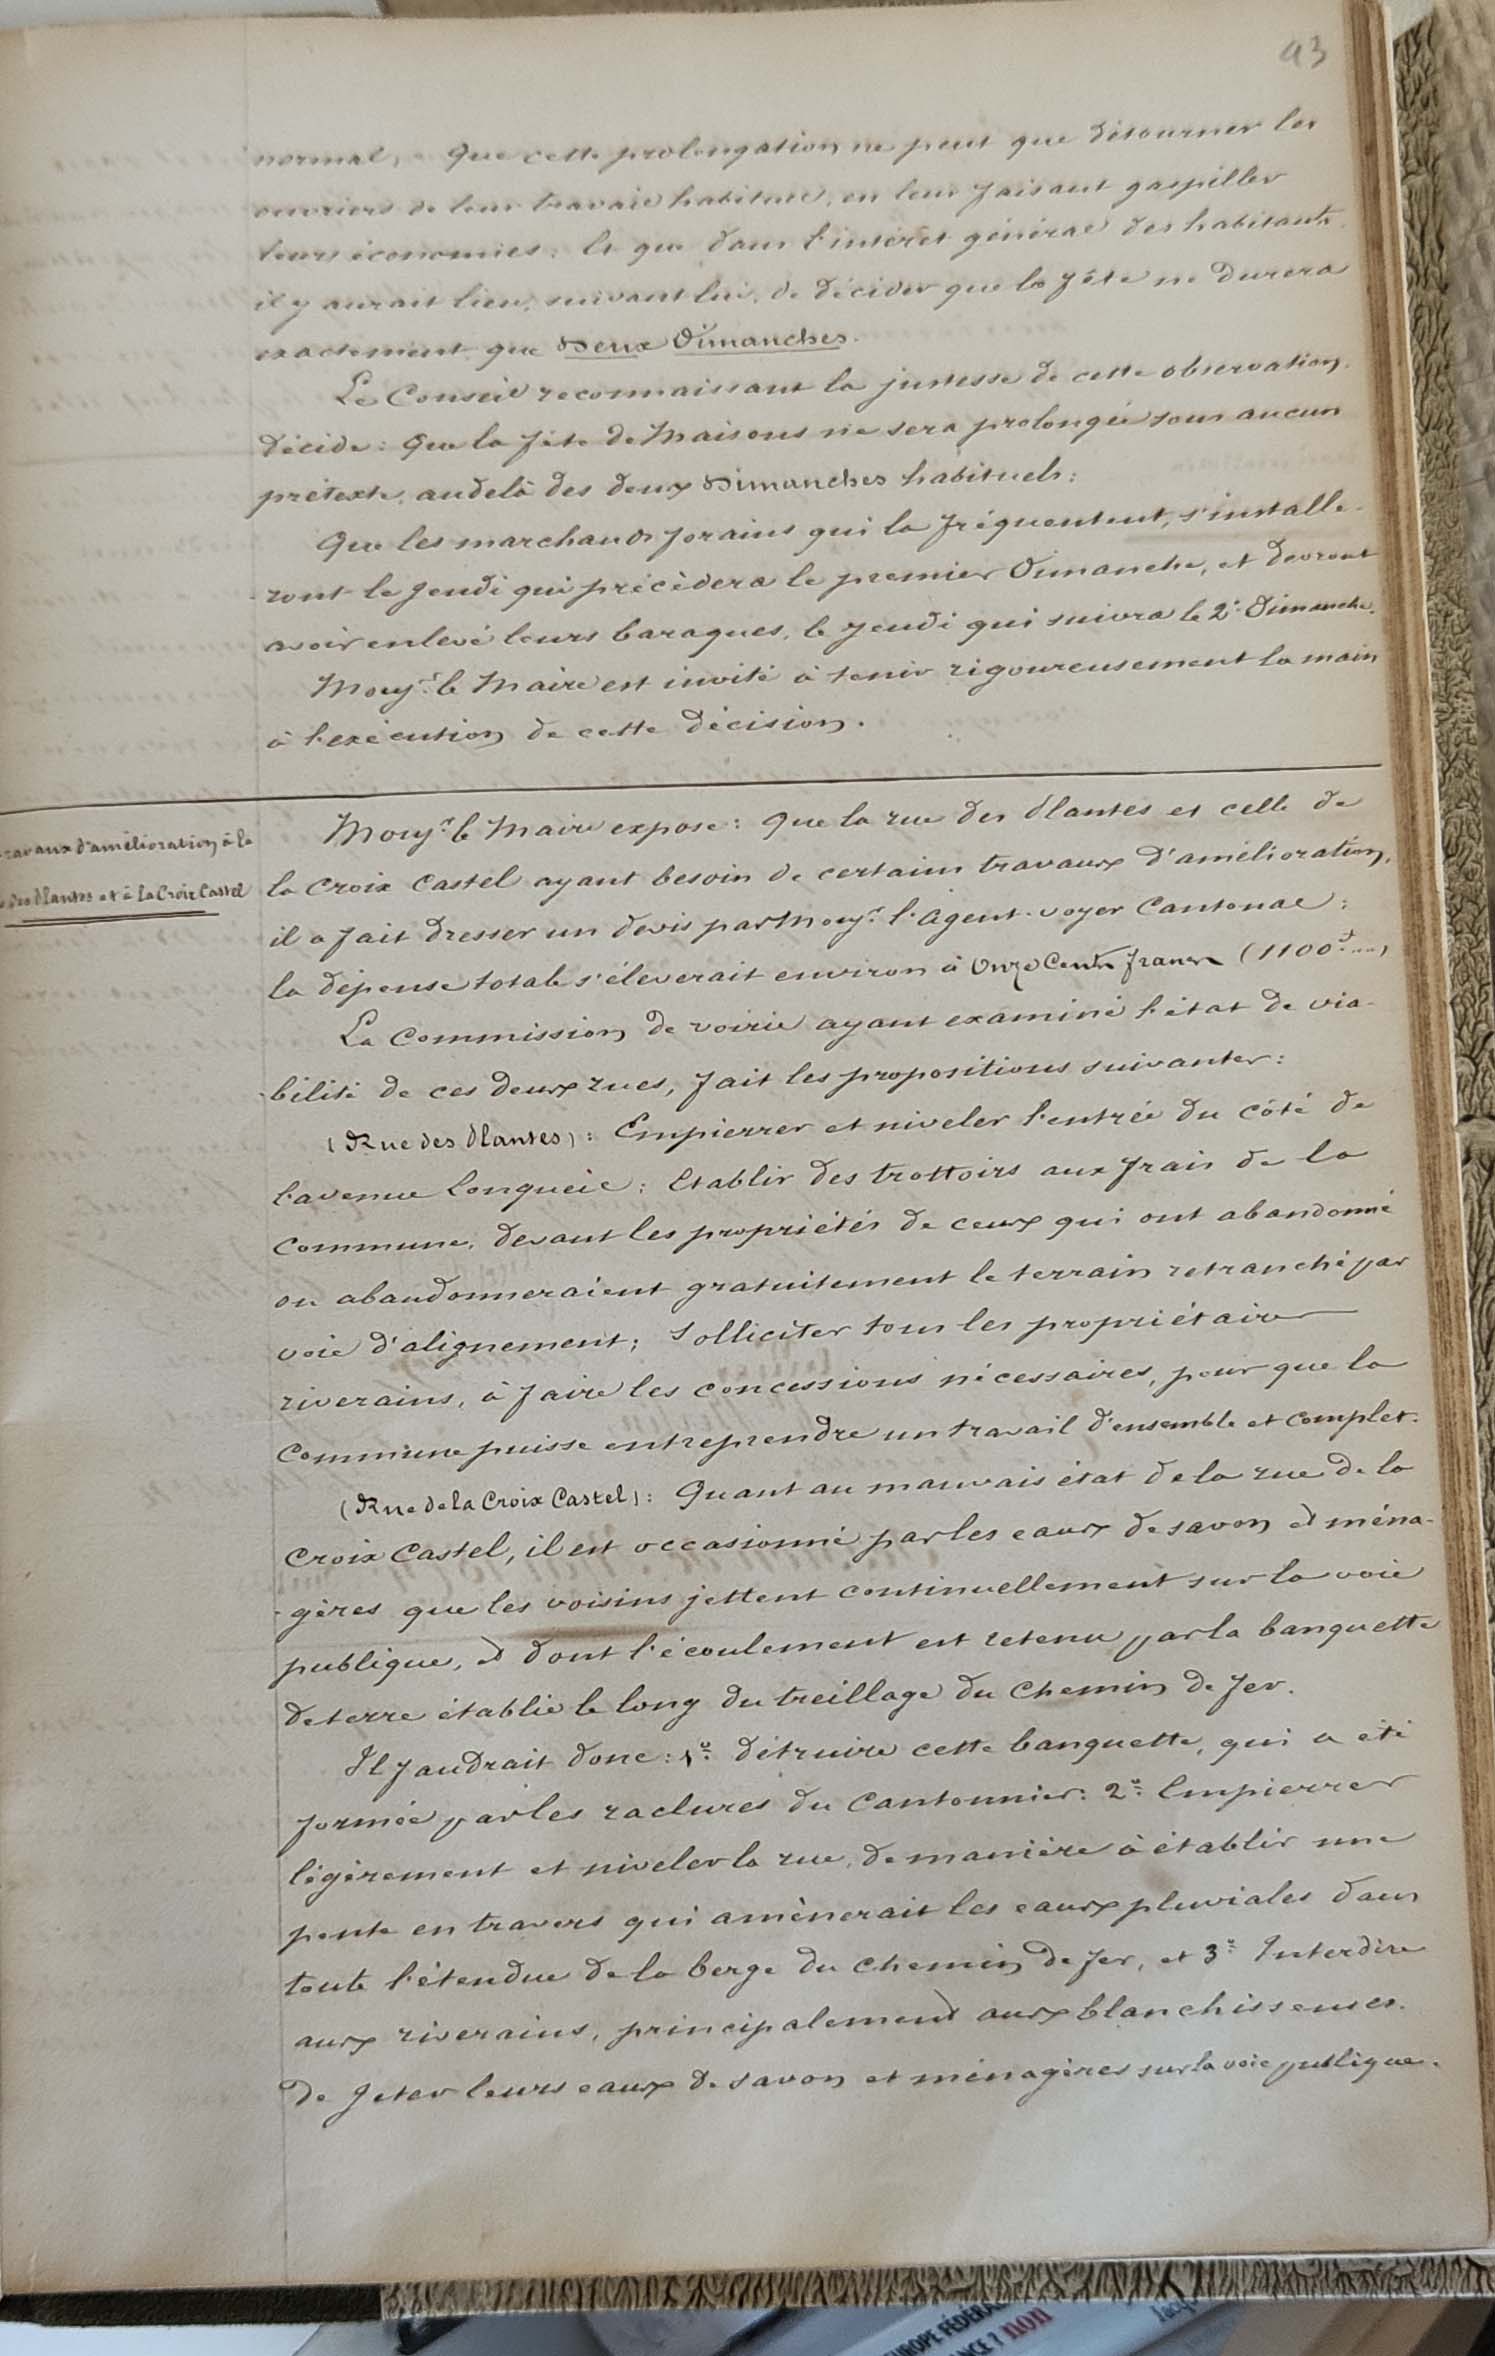 93
normal, Que cette prolongation ne peut que détourner les
ouvriers de leur travail habituel, en leur faisant gaspiller
leurs économies. Et que dans l'intérêt général des habitants
il y aurait lieu, suivant lui, de décider que la fête ne durera
exactement que Deux Dimanches.
Le Conseil reconnaissant la justesse de cette observation,
décide : Que la fête de Maisons ne sera prolongée sous aucun
prétexte, audelà des deux Dimanches habituels :
Que les marchands forains qui la fréquentent, s'installe-
ront le Jeudi qui précèdera le premier Dimanche, et devront
avoir enlevé leurs baraques, le Jeudi qui suivra le 2e Dimanche.
Mons.r le Maire est invité à tenir rigoureusement la main
à l'exécution de cette décision.
ravaux d'amélioration à la
des Plantes et à la Croix Castel
Mons.r le Maire expose : Que la rue des Plantes et celle de
la Croix Castel ayant besoin de certains travaux d'amélioration,
il a fait dresser un devis par Mons.r l'Agent-voyer Cantonal :
la dépense totale s'éleverait environ à Onze Cents francs (1100f....)
La Commission de voirie ayant examiné l'état de via-
bilité de ces deux rues, fait les propositions suivantes :
(Rue des Plantes) : Empierrer et niveler l'entrée du côté de
l'avenue Longueil : Etablir des trottoirs aux frais de la
Commune, devant les propriétés de ceux qui ont abandonné
ou abandonneraient gratuitement le terrain retranché par
voie d'alignement ; Solliciter tous les propriétaires
riverains, à faire les concessions nécessaires, pour que la
Commune puisse entreprendre un travail d'ensemble et complet.
(Rue de la Croix Castel) : Quant au mauvais état de la rue de la
Croix Castel, il est occasionné par les eaux de savon et ména-
-gères que les voisins jettent continuellement sur la voie
publique, et dont l'écoulement est retenu par la banquette
de terre établie le long du treillage du Chemin de fer.
Il faudrait donc : 1º détruire cette banquette, qui a été
formée par les raclures du Cantonnier : 2º Empierrer
légèrement et niveler la rue, de manière à établir une
pente en travers qui amènerait les eaux pluviales dans
toute l'étendue de la berge du Chemin de fer, et 3º Interdire
aux riverains, principalement aux blanchisseuses.
de Jeter leurs eaux de savon et ménagères sur la voie publique.
EUROPE FÉDÉRA
ANCE ? non